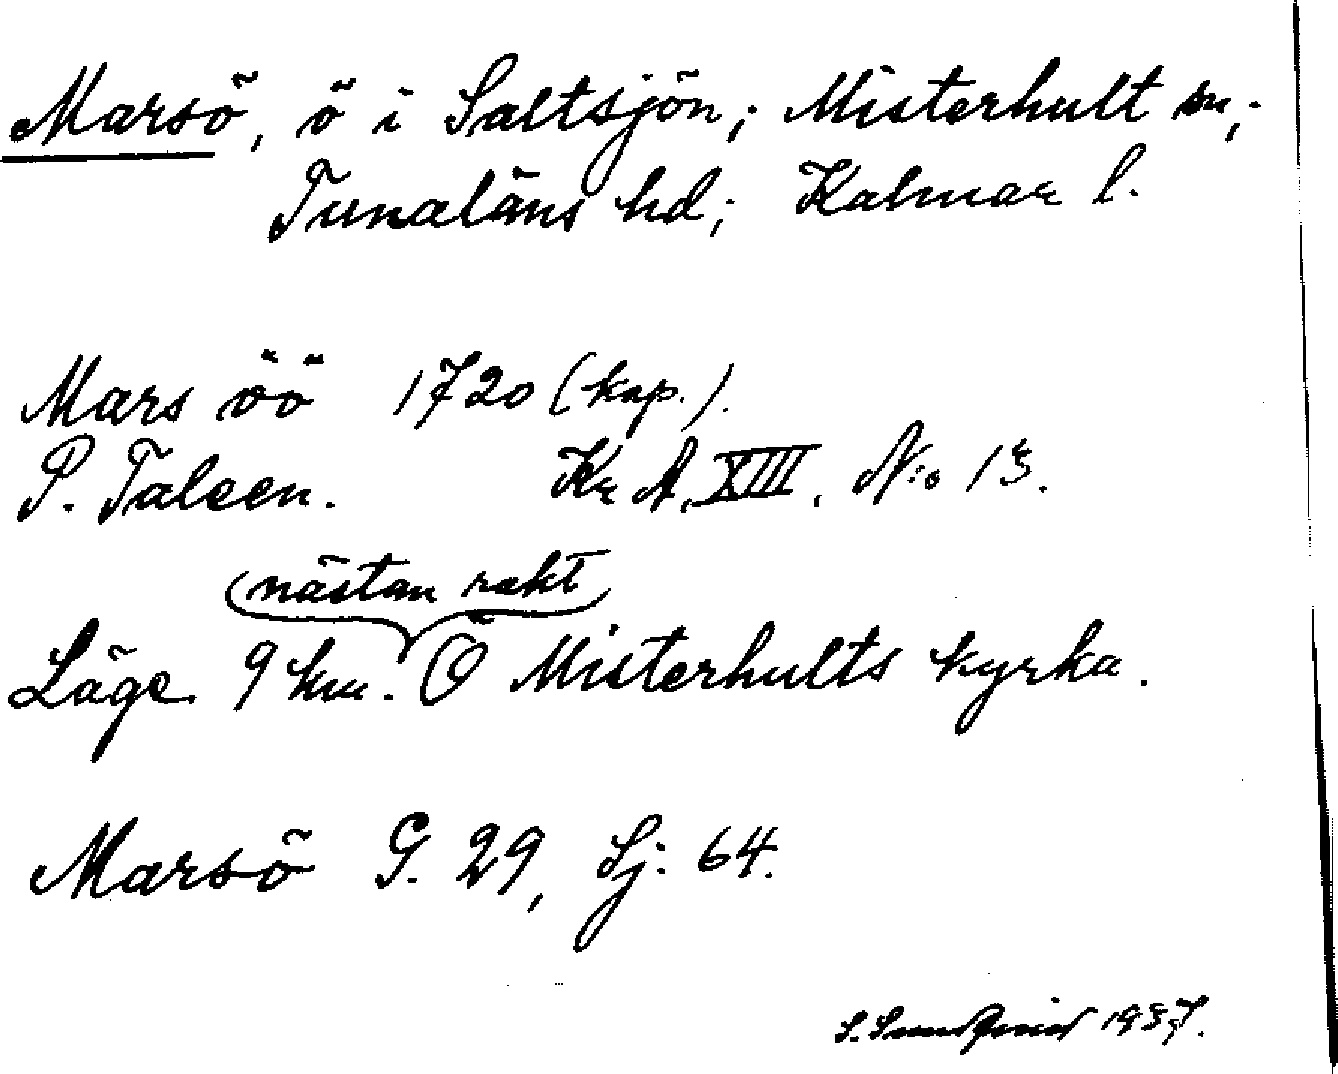 Marsö, ö i Saltsjön; Misterhult sn;
Tunaläns hd; Kalmar l.
Mars öö 1720 (kop.).
P. Taleen. Kr A. XIII. No 13.
nästan rakt
Läge 9 km. Ö Misterhults kyrka.
Marsö G. 29, Sj: 64.
S. 1937.